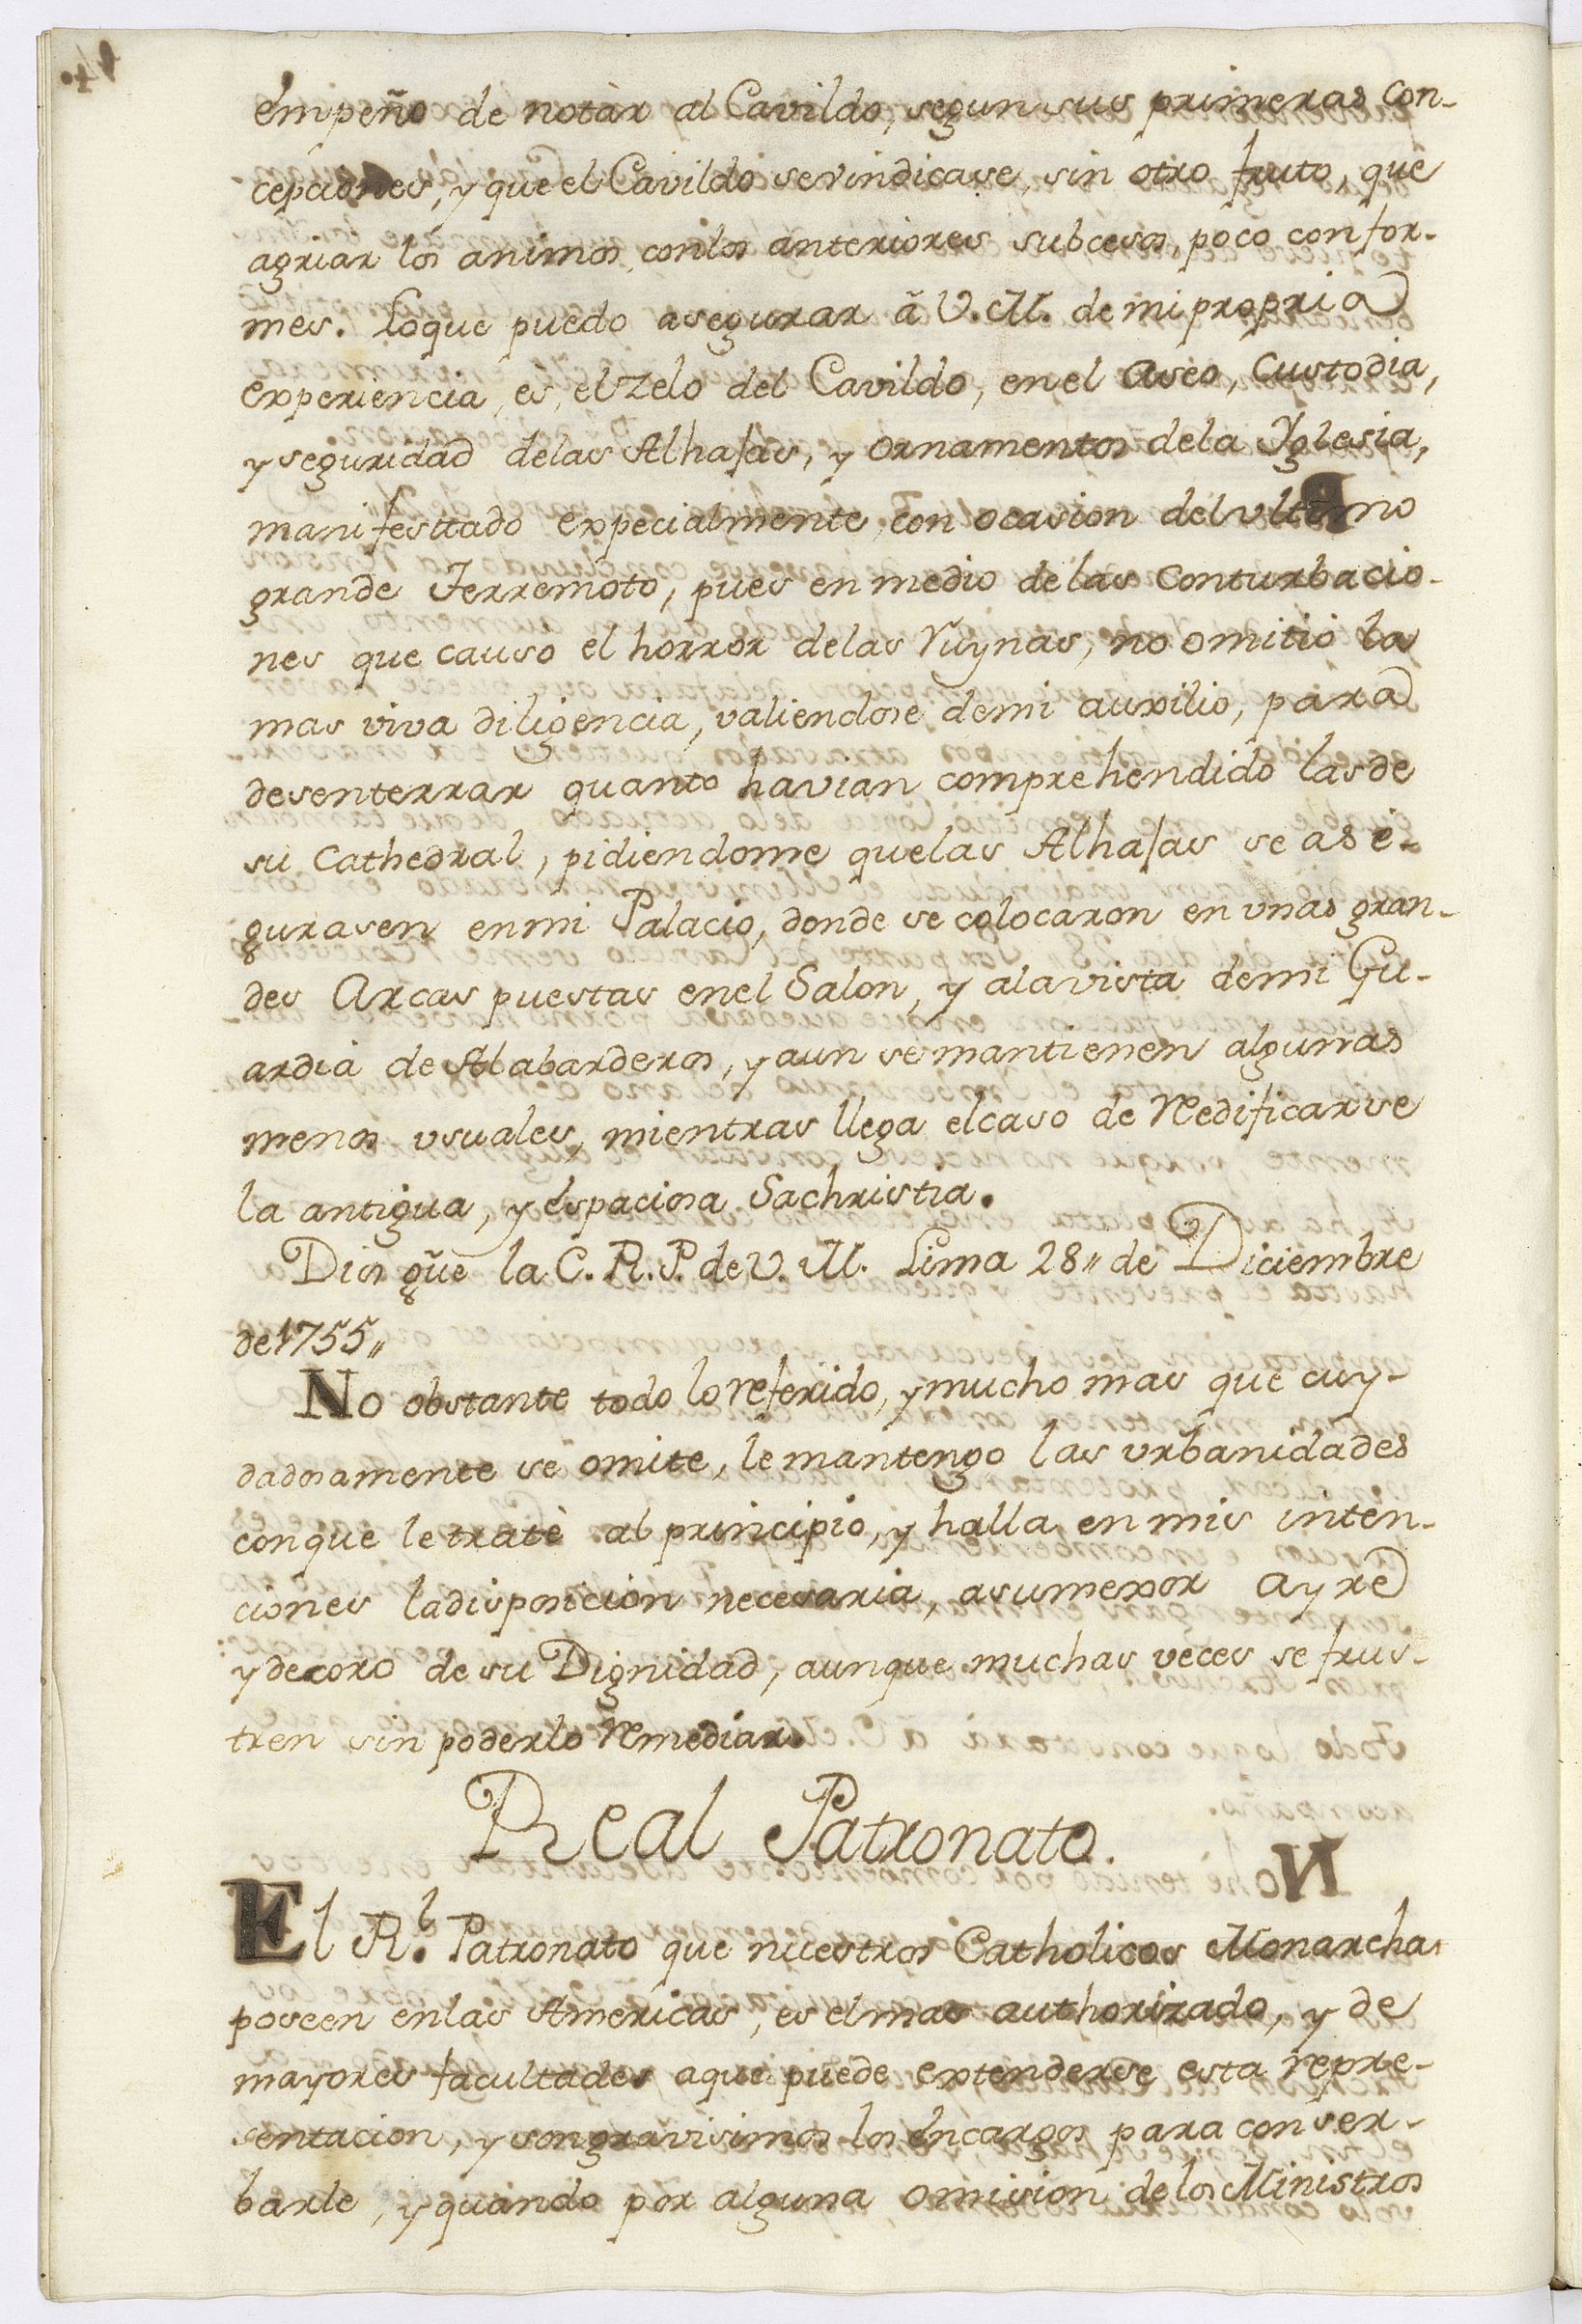 empeño de notàr al Cavildo, segun sus primeras con-
cepciones, y que el Cavildo se vindicase, sin otro fruto, que
agriar los animos, con los anteriores subcesos, poco confor-
mes. Lo que puedo asegurar â V. M. de mi propria
experiencia, es, el zelo del Cavildo, en el aseo, custodia,
y seguridad de las Alhajas, y ornamentos de la Yglesia,
manifesttado expecialmente, con ocasion del vltimo
grande Terremoto, pues en medio de las Conturbacio-
nes que causo el horror de las Ruynas, no omitiò la
mas viva diligencia, valiendose de mi auxilio, para
desenterrar quanto havian comprehendido las de
su Cathedral, pidiendome que las Alhajas se ase-
gurasen en mi Palacio, donde se colocaron en vnas gran-
des Arcas puestas en el Salon, y a la vista de mi Gu-
ardia de Alabarderos, y aun se mantienen algunas
menos vsuales, mientras llega el caso de Redificarse
la antigua, y espaciosa Sachristia.
Dios gũe la C. R. P. de V. M. Lima 28,, de Diciembre
de 1755,,
No obstante todo lo referido, y mucho mas que cuy-
dadosamente se omite, le mantengo las vrbanidades
con que le tratè al principio, y halla en mis inten-
ciones la disposicion necesaria, a su mexor ayre
y decoro de su Dignidad, aunque muchas veces se frus-
tren sin poderlo Remediar.
Real Patronato.
El Rl. Patronato que nuestros Catholicos Monarchas
poseen en las Americas, es el mas authorizado, y de
mayores facultades a que puede extenderse esta repre-
sentacion, y son gravisimos los encargos para conser-
barle, y quando por alguna omision de los Ministros